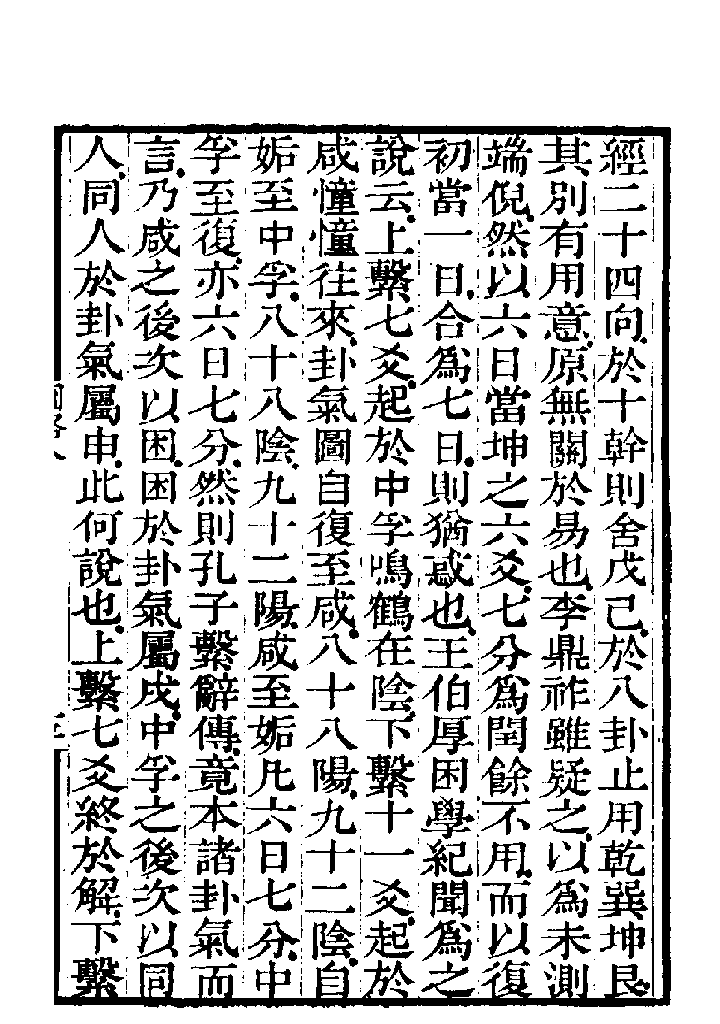 經二十四向於十幹則舍戊己於八卦止用乾巽坤艮
其別有用意原無關於易也李鼎祚雖疑之以為未測
端倪然以六日當坤之六爻七分為閏餘不用而以復
初當一日合為七日則猶惑也王伯厚困學紀聞為之
說云上繫七爻起於中孚鳴鶴在陰下繫十一爻起於
咸憧憧往來卦氣圖自復至咸八十八陽九十二陰自
姤至中孚八十八陰九十二陽咸至姤凡六日七分中
孚至復亦六日七分然則孔子繫辭傳竟本諸卦氣而
言乃咸之後次以困困於卦氣屬戌中孚之後次以同
人同人於卦氣屬申此何說也上繫七爻終於解下繫